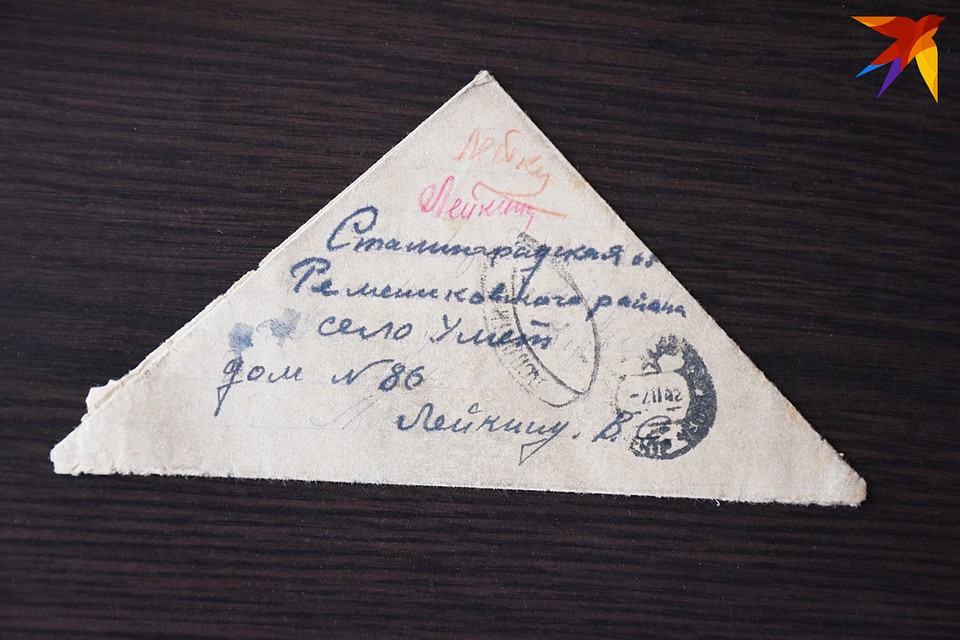 Лейкину
Сталинградская об
Ременниковского района
село Умет
дом № 86
Лейкину. В. С.
-7.11.42